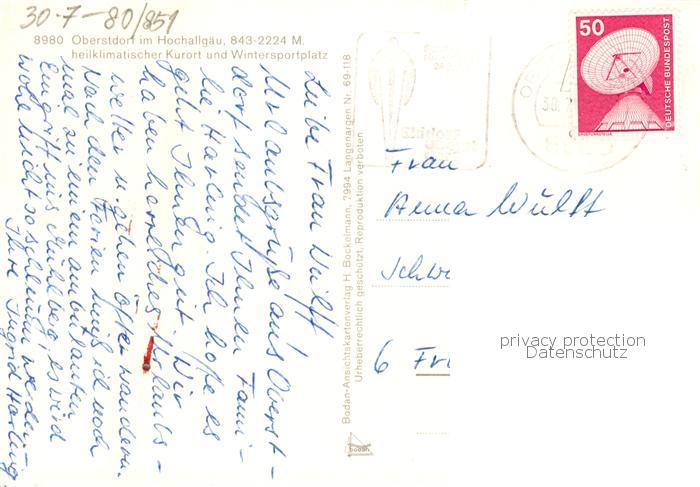 30-7-80/851
8980 Oberstdorf im Hochallgäu, 843-2224 M.
heilklimatischer Kurort und Wintersportplatz
Liebe Frau Wulff
Urlaubsgrüße aus Oberst-
dorf sendet Ihnen Fami-
lie Hartung. Ich hoffe es
geht Ihnen gut. Wir
haben herrliches Urlaubs-
wetter u. gehen öfter wandern.
Nach den Ferien muß ich noch
mal zu einem ambulanten
Eingriff ins Mühlberg, es wird
wohl nicht so schlimm werden.
Ihre Ingrid Hartung
Bodan-Ansichtskartenverlag H. Bockelmann, 7994 Langenargen Nr. 69-118
Urheberrechtlich geschützt. Reproduktion verboten
bodan
50
DEUTSCHE BUNDESPOST
ERDFUNKSTELLE
Frau
Anna Wulff
Schw
6 Fr
privacy protection
Datenschutz